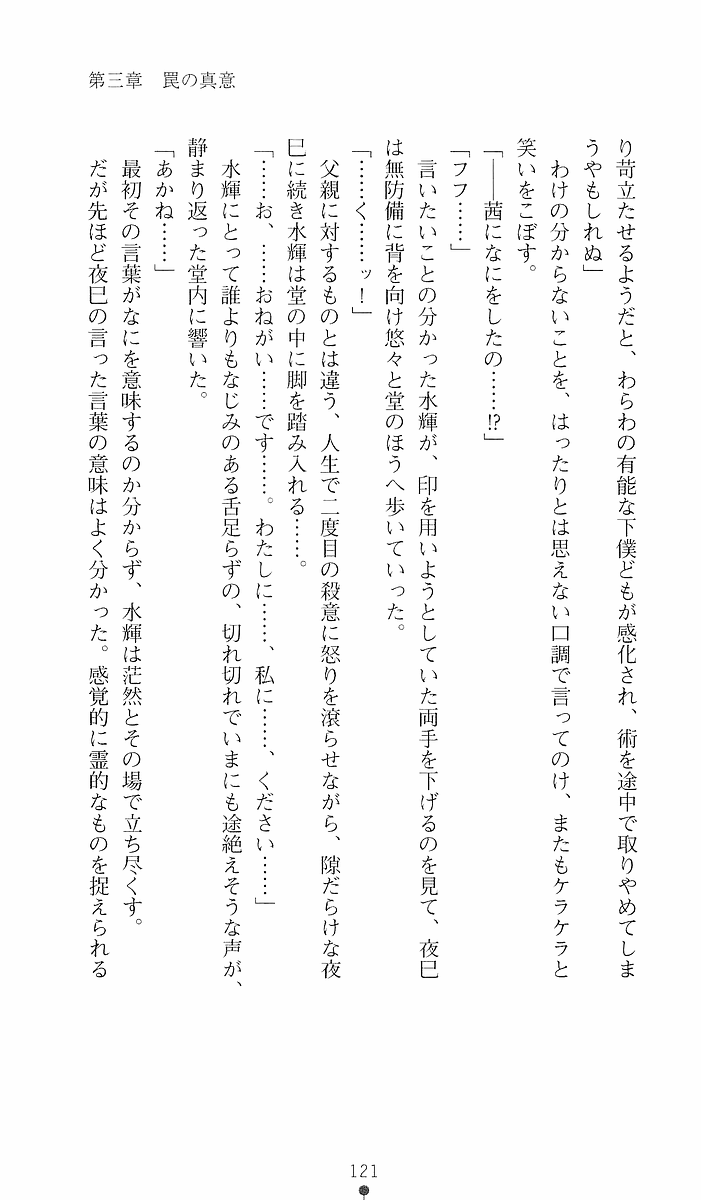 第三章　罠の真意
り苛立たせるようだと、わらわの有能な下僕どもが感化され、術を途中で取りやめてしま
うやもしれぬ」
　わけの分からないことを、はったりとは思えない口調で言ってのけ、またもケラケラと
笑いをこぼす。
「――茜になにをしたの……!?」
「フフ……」
　言いたいことの分かった水輝が、印を用いようとしていた両手を下げるのを見て、夜巳
は無防備に背を向け悠々と堂のほうへ歩いていった。
「……く……ッ！」
　父親に対するものとは違う、人生で二度目の殺意に怒りを滾らせながら、隙だらけな夜
巳に続き水輝は堂の中に脚を踏み入れる……。
「……お、……おねがい……です……。わたしに……、私に……、ください……」
　水輝にとって誰よりもなじみのある舌足らずの、切れ切れでいまにも途絶えそうな声が、
静まり返った堂内に響いた。
「あかね……」
　最初その言葉がなにを意味するのか分からず、水輝は茫然とその場で立ち尽くす。
　だが先ほど夜巳の言った言葉の意味はよく分かった。感覚的に霊的なものを捉えられる
121